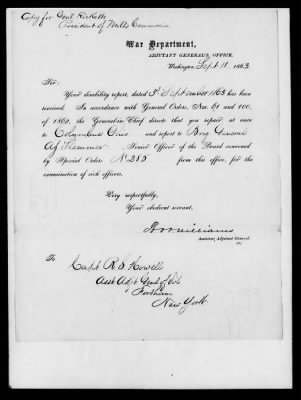 Copy for Genl Ricketts
President of Mil Commission
War Department,
ADJUTANT GENERAL'S OFFICE,
Washington, Sept 11, 1863
Sir:
Your disability report, dated 5th September 1863 has been
received. In accordance with General Orders, Nos. 61 and 100,
of 1862, the General-in-Chief directs that you repair at once
to Columbus Ohio and report to Brig General
A J Slemmer, Senior Officer of the Board convened
by Special Orders No 285 from this office, for the
examination of sick officers.
Very respectfully,
Your obedient servant,
Williams
Assistant Adjutant General.
To
Capt R S Howell
Asst Adjt Genl of Vols
Fordham
New York